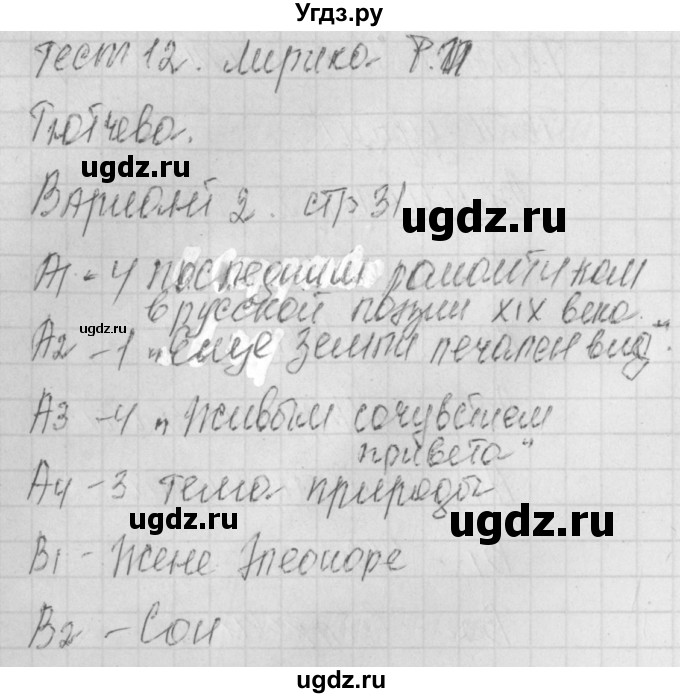 Угдз.ру
Тест 12. Лирика Ф.И
Тютчева.
ugdz.ru
Вариант 2. стр 31
ugdz.ru
А1 - 4 последним романтиком
в русской поэзии XIX века.
ugdz.ru
А2 - 1 „еще земли печален вид"
А3 - 4 „Живым сочувствием
привета"
А4 - 3 тема природы
ugdz.ru
ugdz.ru
В1 - Жене Элеоноре
В2 - Сон
ugdz.ru
ugdz.ru